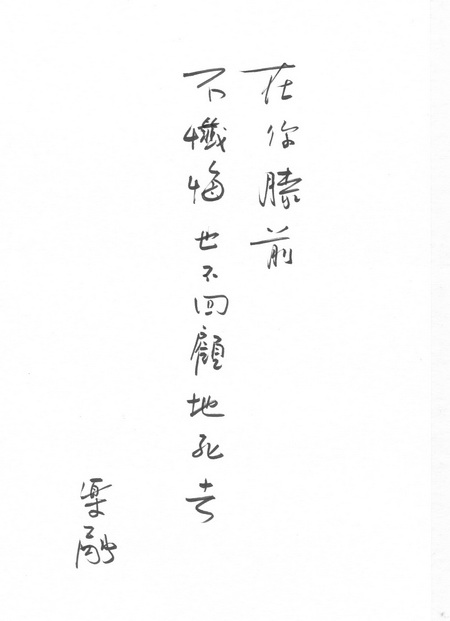 在你膝前
不懺悔也不回顧地死去
渠融